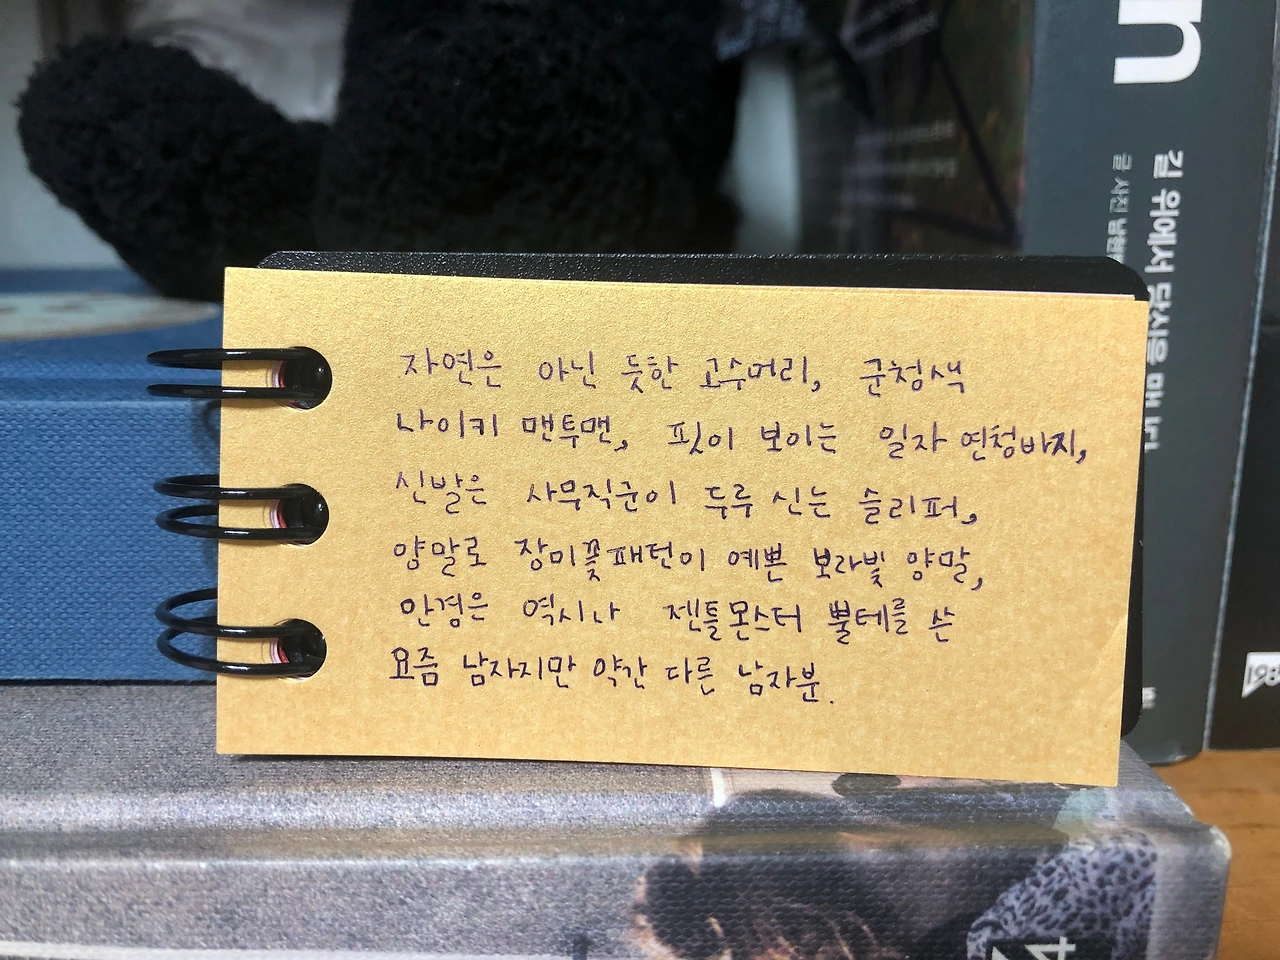 자연은 아닌 듯한 고수머리, 군청색
나이키 맨투맨, 핏이 보이는 일자 연청바지,
신발은 사무직군이 두루 신는 슬리퍼,
양말로 장미꽃패턴이 예쁜 보라빛 양말,
안경은 역시나 젠틀몬스터 뿔테를 쓴
요즘 남자지만 약간 다른 남자분.
n
길 위에서 당신을 만나다
글 사진
4